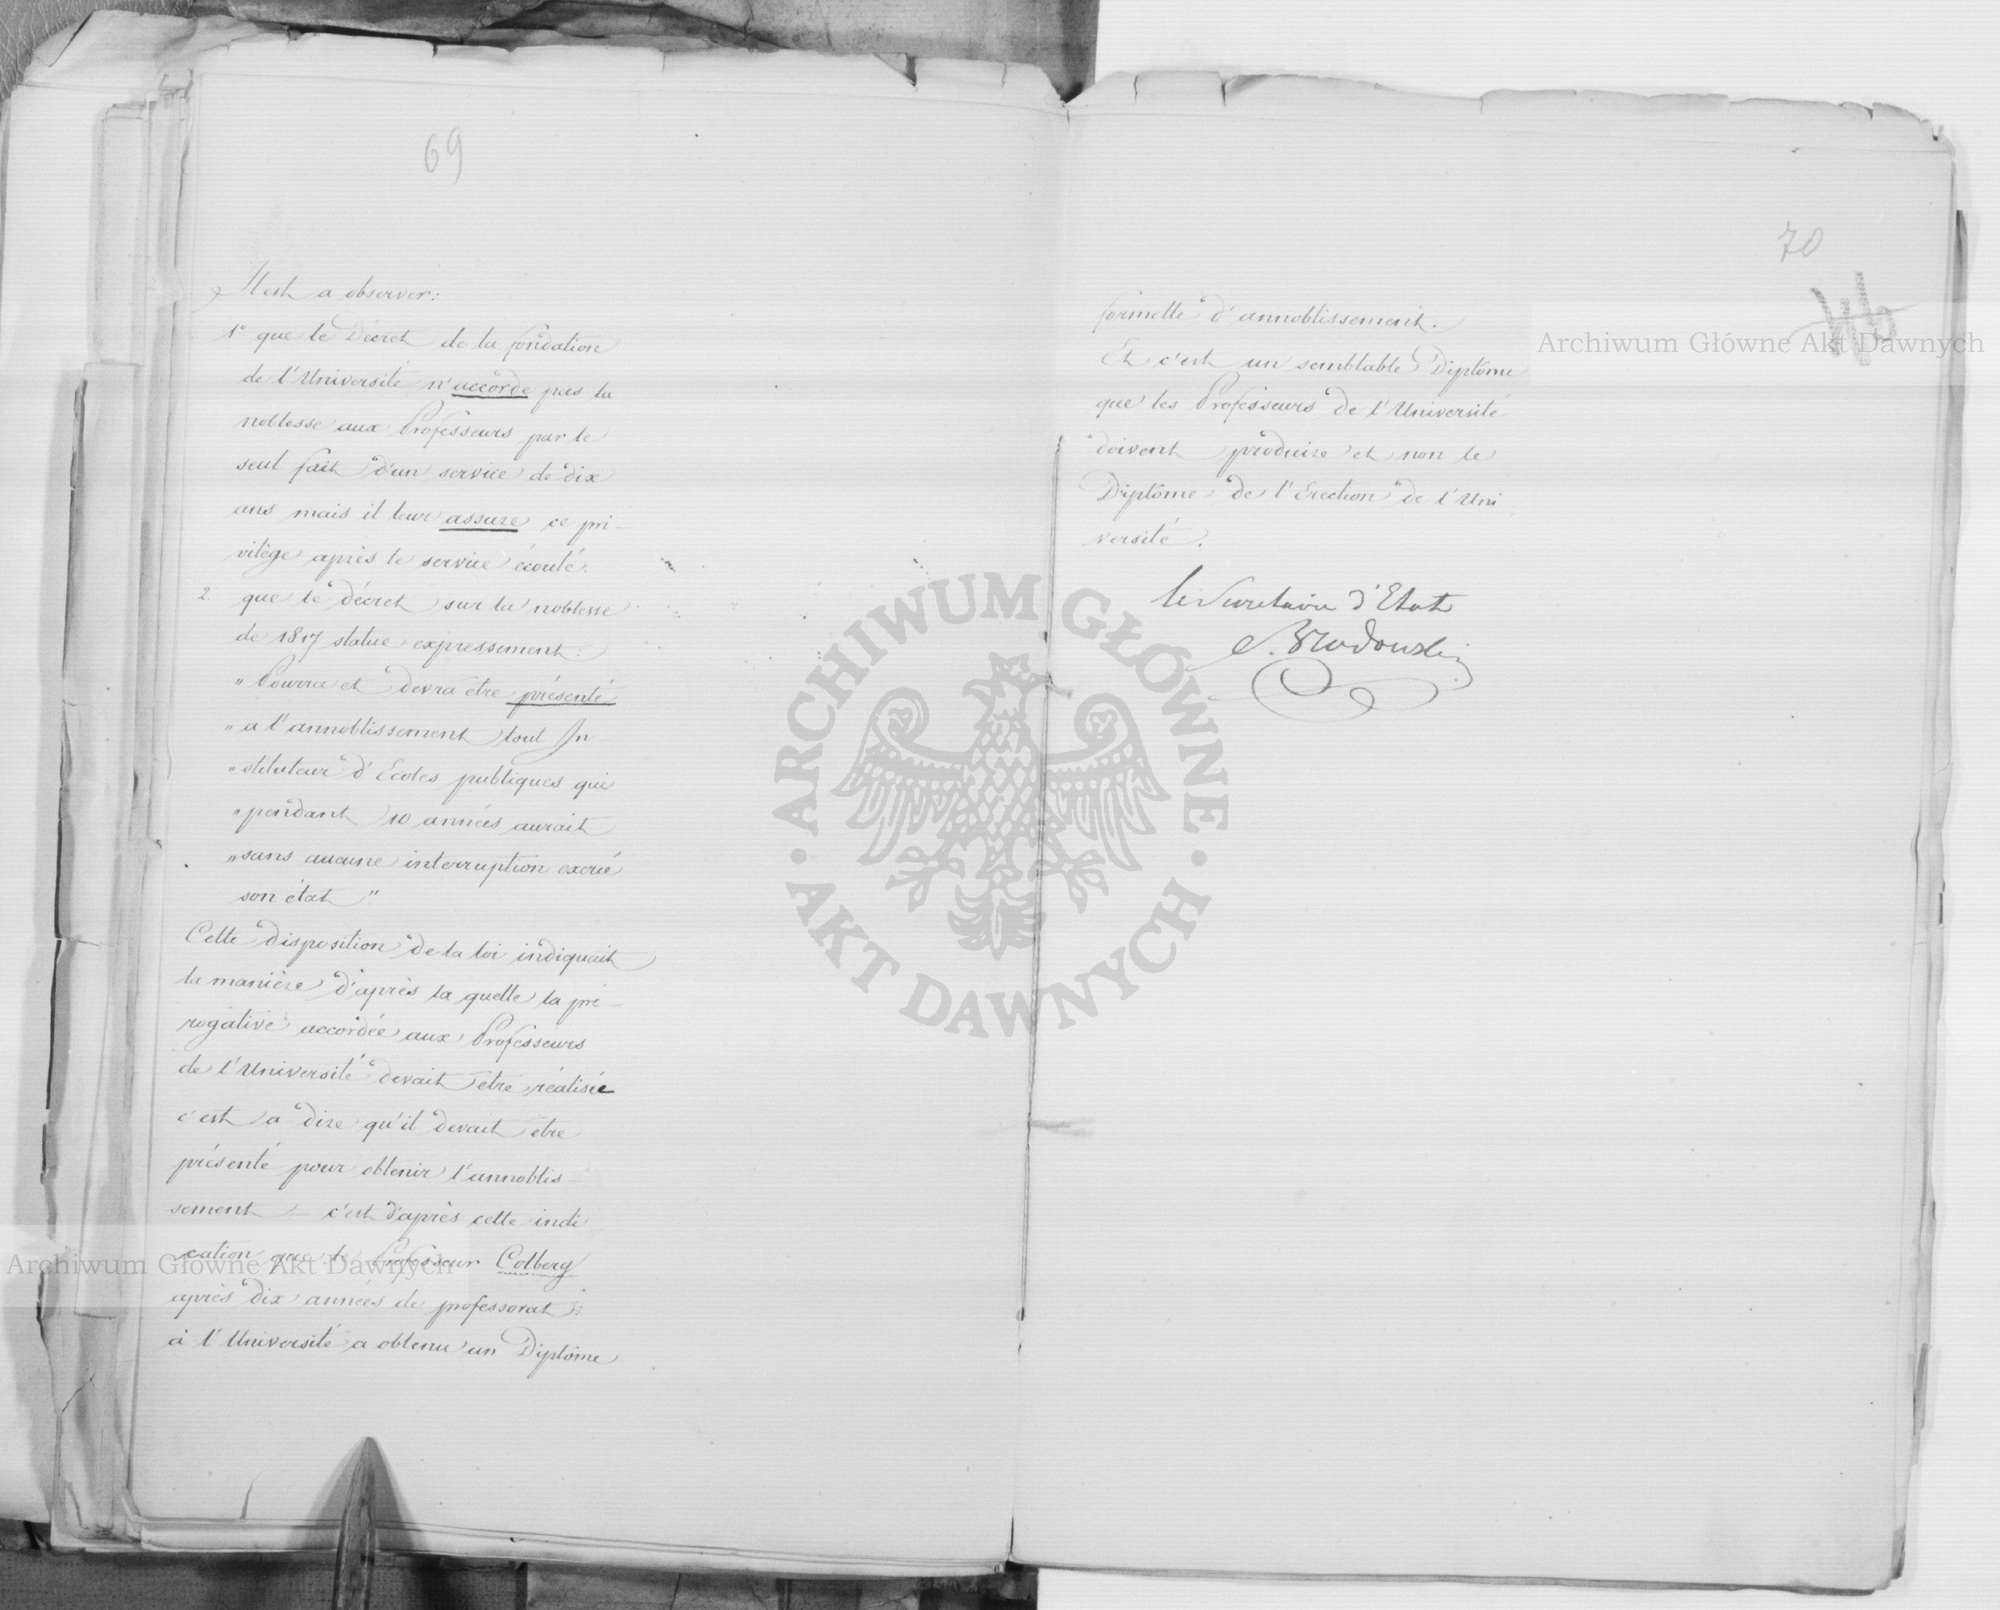 69
Il est a observer:
1° que le Décret de la fondation
de l'Université n'accorde pas la
noblesse aux Professeurs par le
seul fait d'un service de dix
ans mais il leur assure ce pri-
vilège après le service écoulé.
2. que le décret sur la noblesse
de 1817 statue expressement:
" Pourra et devra être présenté
" a l'annoblissement tout In
" stituteur d'Ecoles publiques qui
" pendant 10 années aurait
" sans aucune interruption exercé
son état "
Cette disposition de la loi indiquait
la manière d'après la quelle la pré-
rogative accordée aux Professeurs
de l'Université devait être réalisée
c'est a dire qu'il devait être
présenté pour obtenir l'annoblis-
sement – c'est d'après cette indi
cation que le Professeur Colberg
après dix années de professorat
à l'Université a obtenu un Diplôme
70
formelle d'annoblissement.
Et c'est un semblable Diplôme
que les Professeurs de l'Université
doivent produire et non le
Diplôme de l'Erection de l'Uni
versité.
le Secretaire d'Etat
Archiwum Główne Akt Dawnych
Archiwum Główne Akt Dawnych
ARCHIWUM GŁÓWNE
AKT DAWNYCH